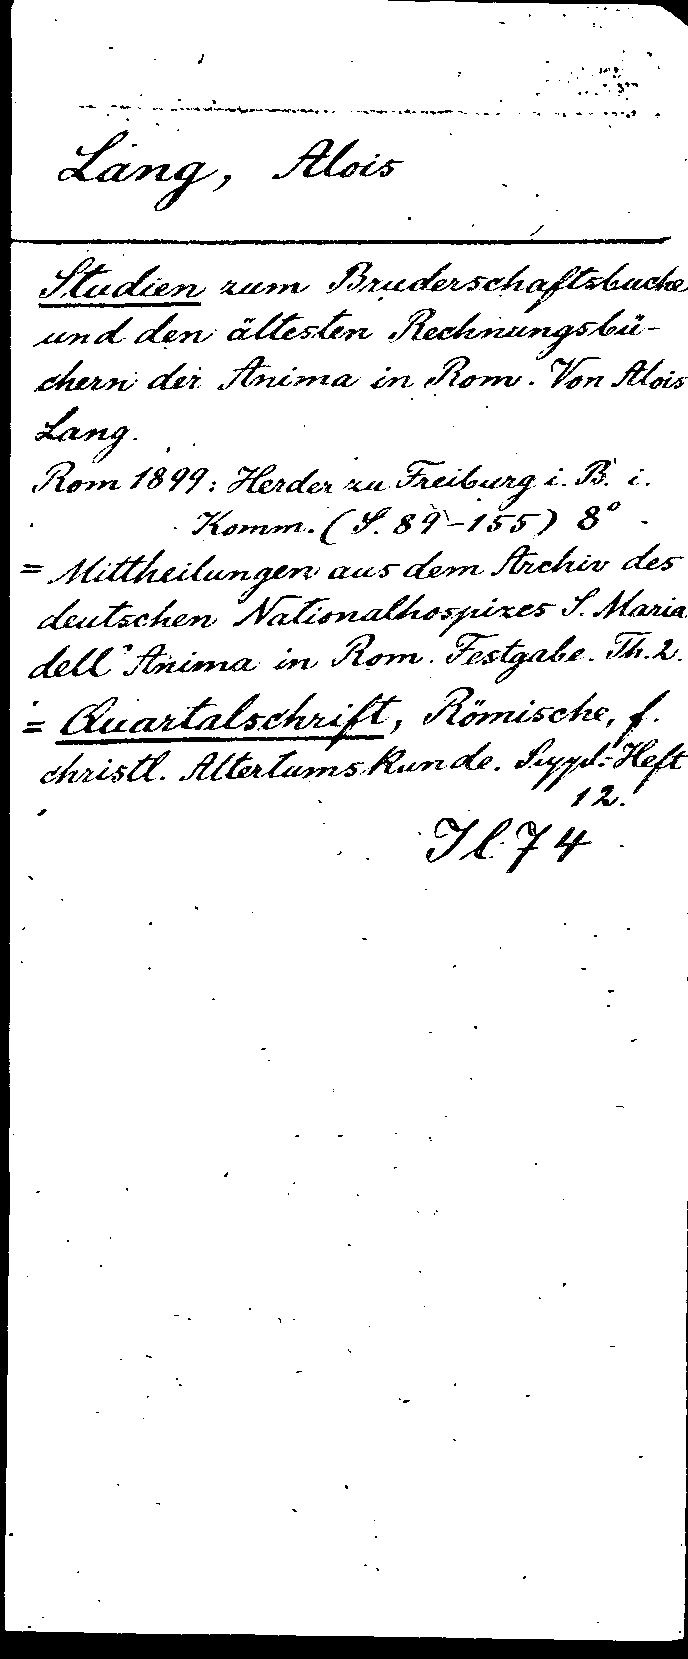 Lang, Alois
Studien zum Bruderschaftsbuche
und den ältesten Rechnungsbü-
chern der Anima in Rom. Von Alois
Lang.
Rom 1899: Herder zu Freiburg i. B. i.
Komm. (S. 89-155) 8°
= Mittheilungen aus dem Archiv des
deutschen Nationalhospizes S. Maria
dell'Anima in Rom. Festgabe. Th. 2.
= Quartalschrift, Römische, f.
christl. Altertumskunde. Suppl.-Heft
12.
Il 74